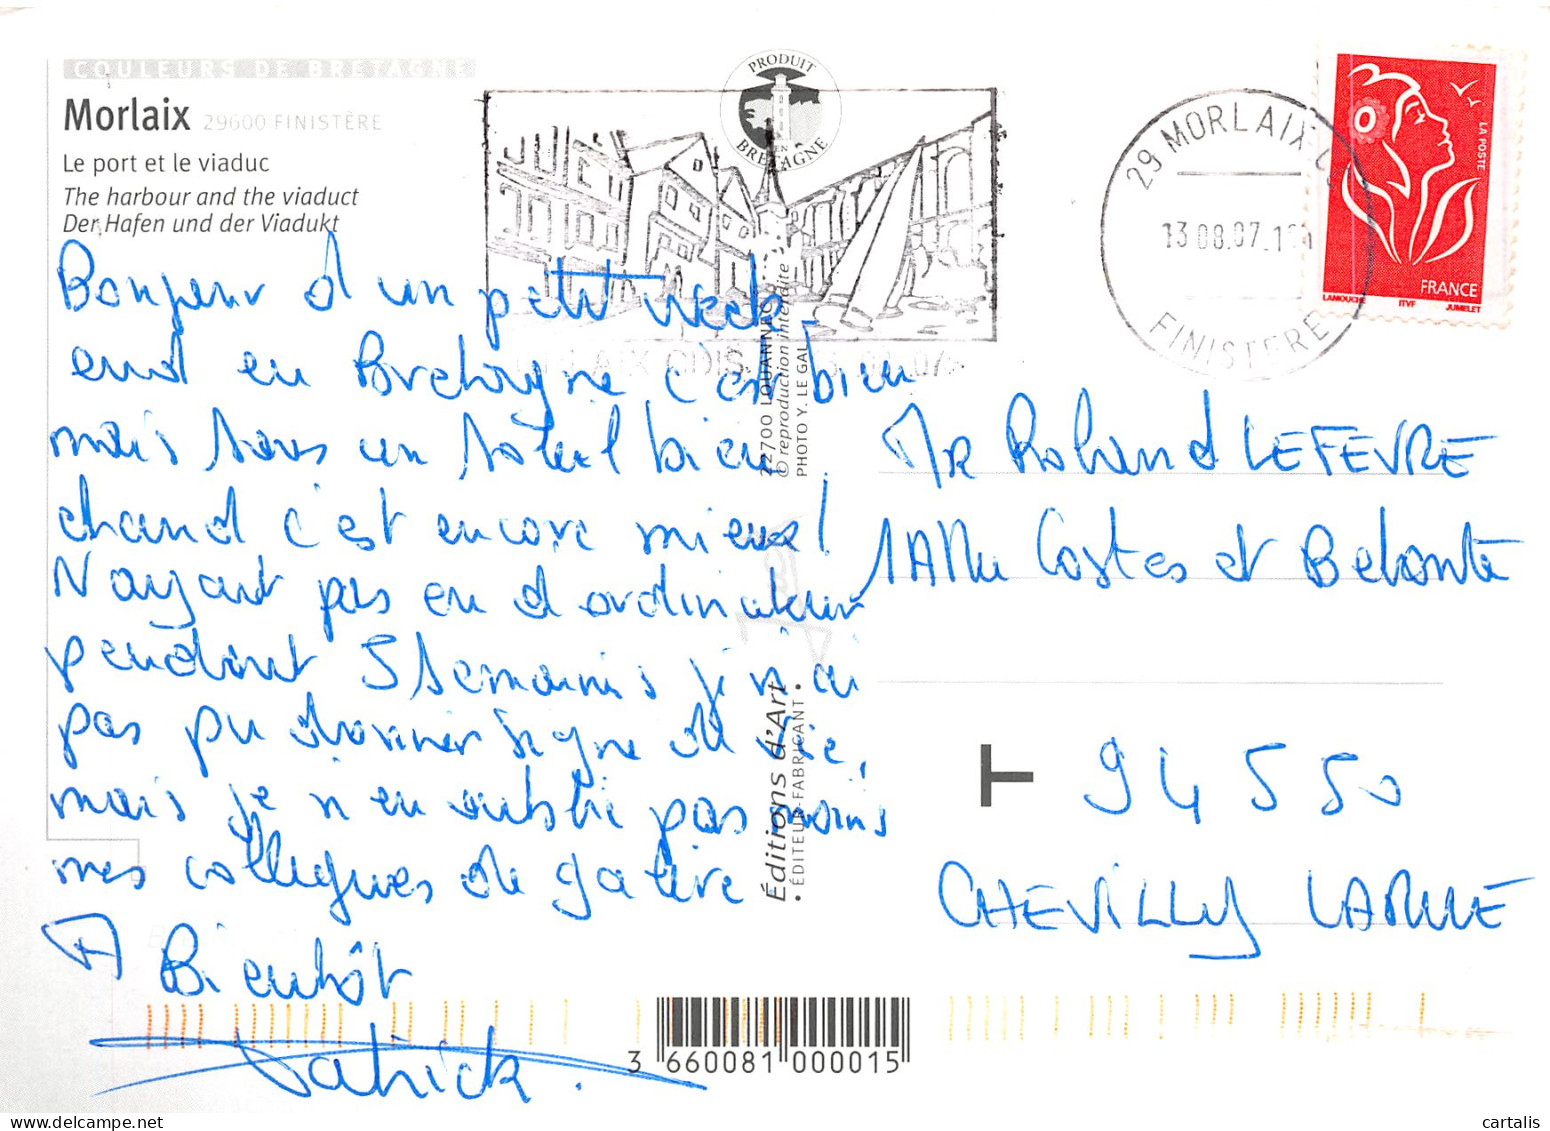 COULEURS DE BRETAGNE
Morlaix 29600 FINISTÈRE
Le port et le viaduc
The harbour and the viaduct
Der Hafen und der Viadukt
PRODUIT
EN
BRETAGNE
29 MORLAIX
13.08.07
FINISTERE
LA POSTE
FRANCE
LAMOUCHE ITVF JUMELET
Bonjour d'un petit week-
end en Bretagne c'est bien
mais sous un soleil bien
chaud c'est encore mieux!
N'ayant pas eu d'ordinateur
pendant 3 semaines je n'ai
pas pu donner signe de vie,
mais je n'en oublie pas moins
mes collègues de galère
A Bientôt
Patrick.
22700 LOUANNEC
© reproduction interdite
PHOTO Y. LE GAL
Éditions d'Art
• ÉDITEUR-FABRICANT •
Mr Roland LEFEVRE
Costes et Bellonte
94550
CHEVILLY LARUE
3 660081 000015
cartalis